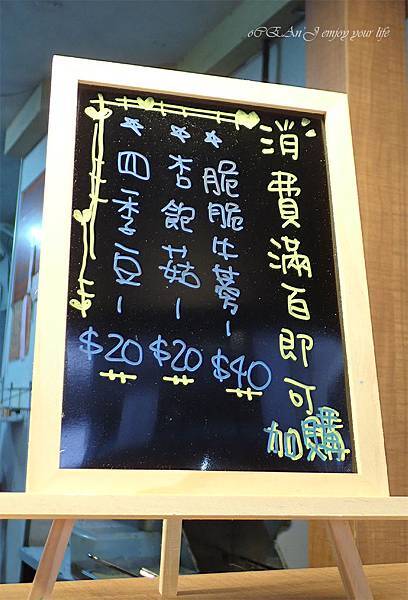 oCEAn'J enjoy your life
消費滿百即可加購
脆脆牛蒡-$40
杏鮑菇-$20
四季豆-$20